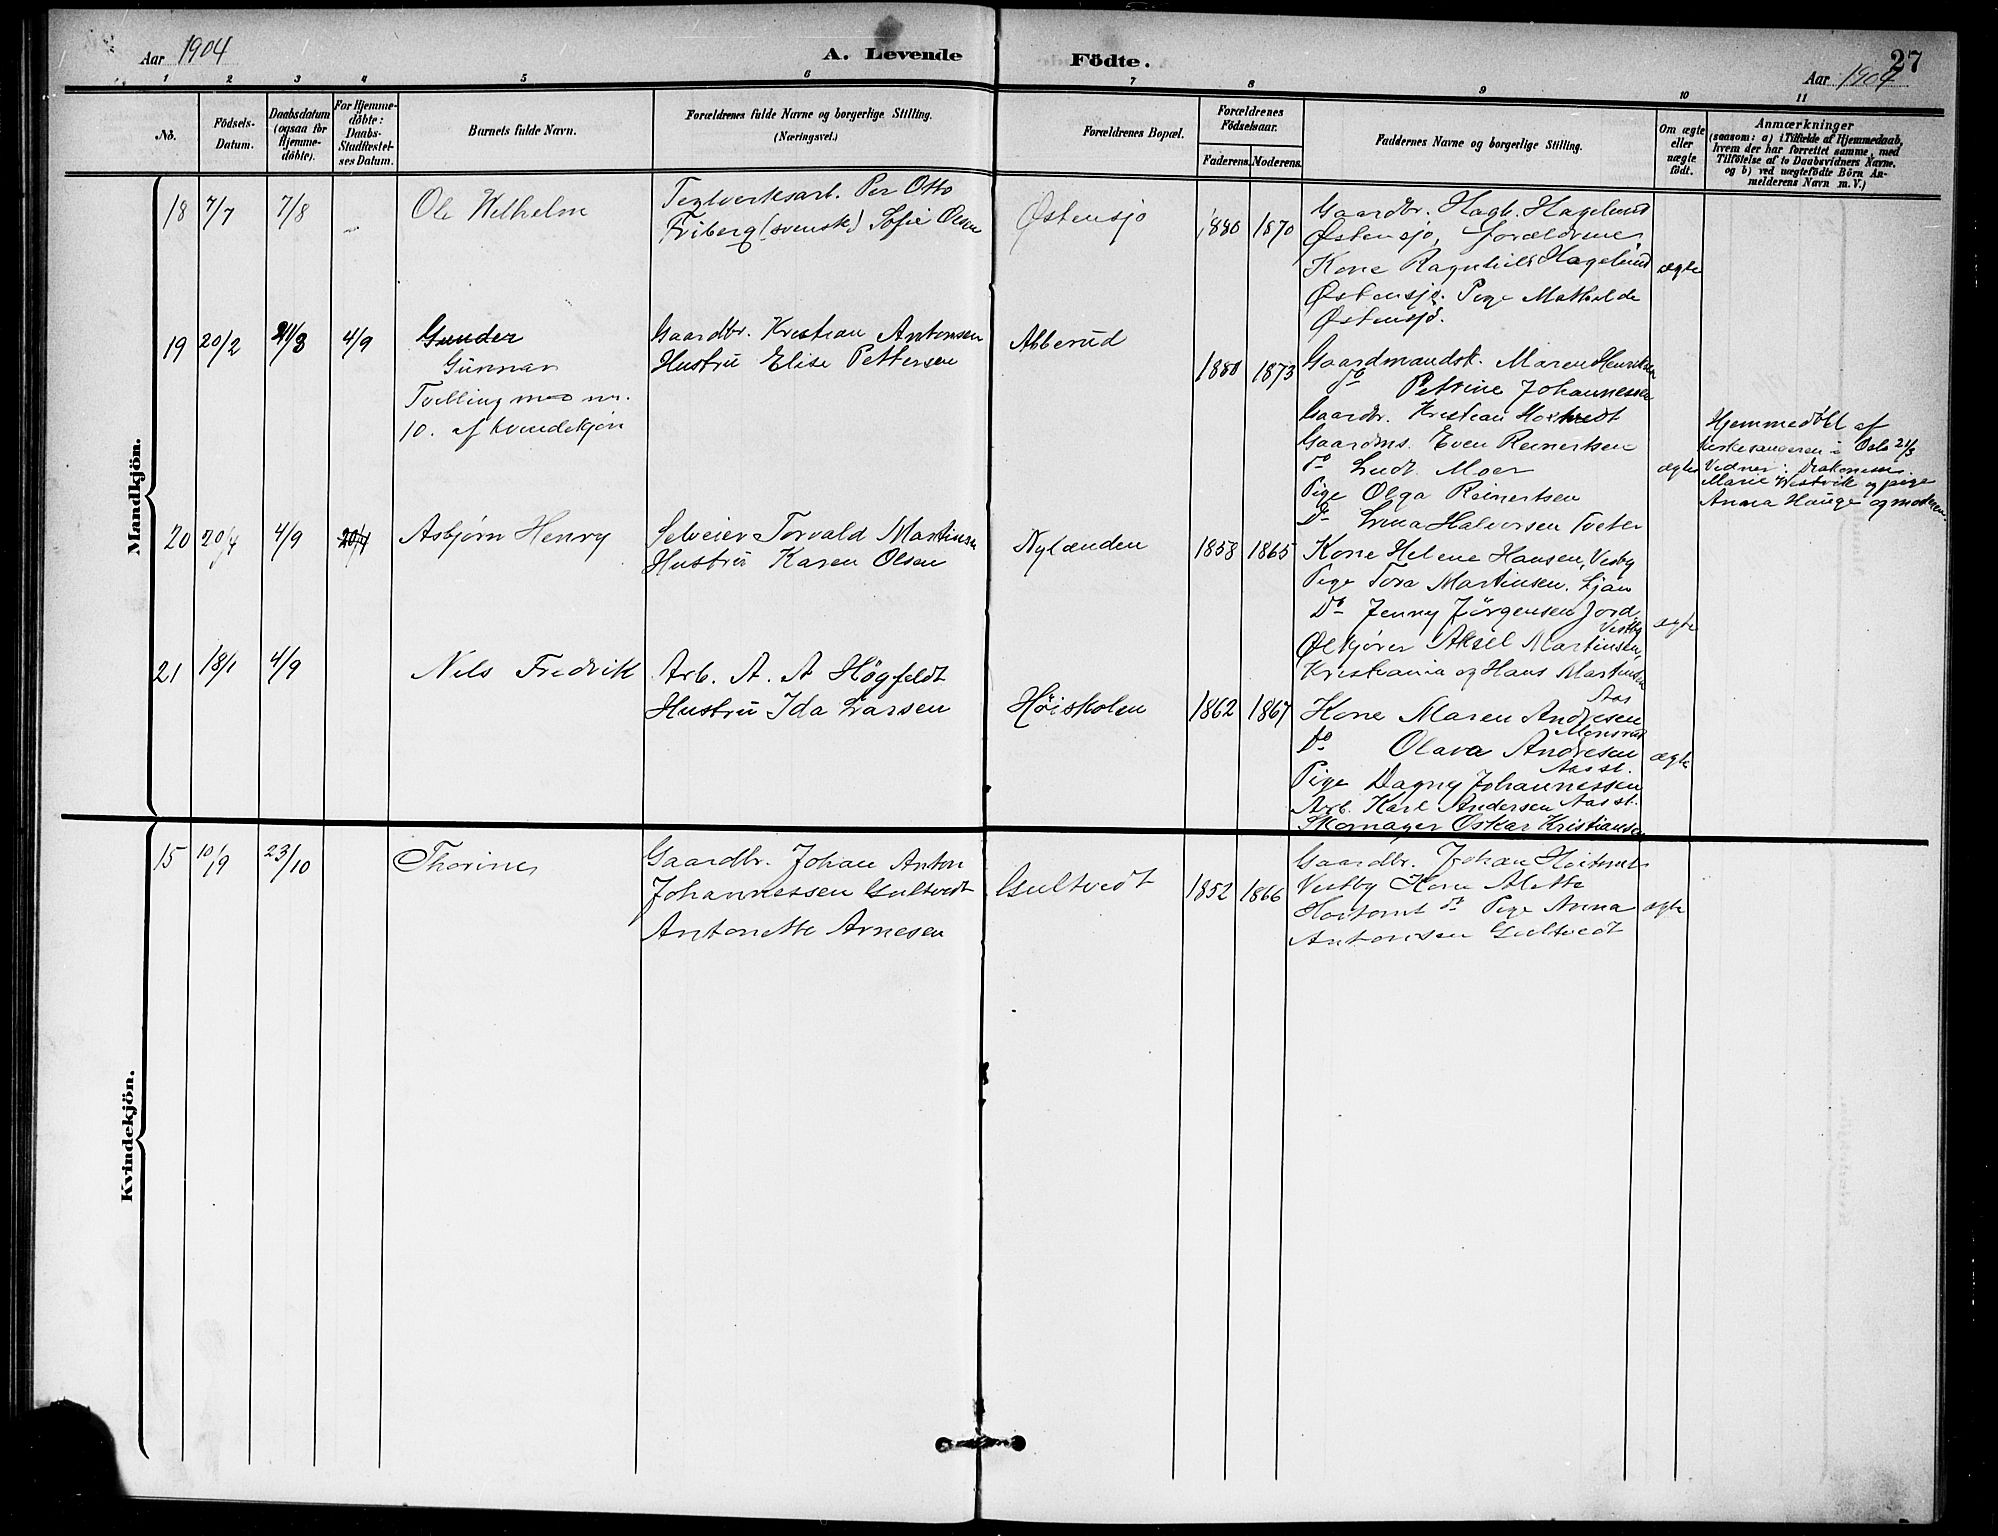 Aar 1904
A. Levende Födte.
27
Aar 1904
1 2 3 4 5 6 7 8 9 10 11
No.
Födsels-Datum.
Daabsdatum (ogsaa for Hjemme-döbte).
For Hjemme-döbte: Daabs-Stadfæstel-ses Datum.
Barnets fulde Navn.
Forældrenes fulde Navne og borgerlige Stilling.
(Næringsvei.)
Forældrenes Bopæl.
Forældrenes Födselsaar.
Faderens. Moderens.
Faddernes Navne og borgerlige Stilling.
Om ægte eller nægte födt.
Anmærkninger
(saasom: a) i Tilfælde af Hjemmedaab,
hvem der har forrettet samme, med
Tilföielse af to Daabsvidners Navne.
og b) ved nægtefödte Börn An-
melderens Navn m. V.)
Mandkjön.
18 7/7 7/8 Ole Wilhelm
Teglverksarb. Per Otto
Friberg (svensk) Sofie Olsen
Østensjø
1880 1870
Gaardbr. Hagb. Hagelund
Østensjø, forældrene,
Kone Ragnhild Hagelund
Østensjø. Pige Mathilde
Østensjø.
ægte
19 20/2 21/3 4/9 Gunder
Gunnar
Tvilling med nr.
10. af kvindekjøn
Gaardbr. Kristian Antonsen
Hustru Elise Pettersen
Abberud
1880 1873
Gaardmandsk. Maren Henriksen
do Petrine Johannessen
Gaardbr. Kristian
Gaardms. Even Reinertsen
do Ludv. Moer
Pige Olga Reinertsen
Do Halvorsen Tveter
ægte
Hjemmedøbt af
kirkesangeren i Oslo 21/3
Vidner: Diakonesse
Marie Westvik og pige
Anna Hauge og moderen.
20 20/4 4/9 20/4 Asbjørn Henry
Selveier Torvald Martinsen
Hustru Karen Olsen
Nylænden
1858 1865
Kone Helene Hansen, Vestby
Pige Tora Martinsen. Ljan
Do Jenny Jørgensen Jord,
Vestby
Ølkjører Aksel Martinsen,
Kristiania og Hans Martinsen
Aas
ægte
21 18/1 4/9 Nils Fredrik
Arb. A. A Høgfeldt
Hustru Ida Larsen
Høiskolen
1862 1867
Kone Maren Andresen
Monsrud
Do Olava Andresen
Aas st.
Pige Dagny Johannessen
Arb. Karl Andersen Aas st.
Skomager Oskar Kristiansen
ægte
Kvindekjön.
15 10/9 23/10 Thorine
Gaardbr. Johan Anton
Johannessen Gultvedt
Antonette Arnesen
Gultvedt
1852 1866
Gaardbr. Johan Hoitomt
Vestby Kone Alette
Hoitomt do Pige Anna
Antonsen Gultvedt
ægte